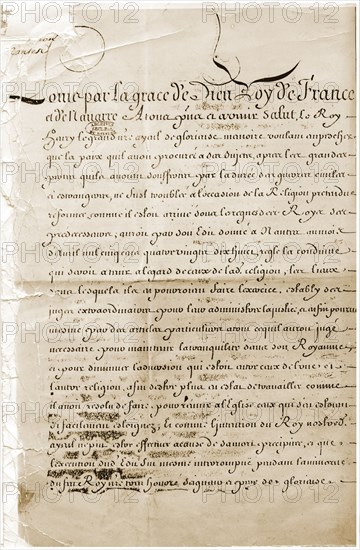 Louis par la grace de Dieu Roy de France
et de Navarre A tous et a venir Salut, le Roy
Henry le grand ayeul de glorieuse memoire voulant empescher
que la paix quil avoit procurée a ses sujets, apres les grandes
pertes quils avoient souffertes par la durée des guerres civiles
et estrangeres, ne fust troublée a l'occasion de la Religion pretendue
reformée, comme il estoit arrivé sous les regnes des Roys ses
predecesseurs, auroit par son Edit donné a Nantes au mois
d'avril mil cinq cens quatre vingt dix huit, reglé la conduite
qui seroit a tenir a l'egard de ceux de lad. religion, les lieux
dans lesquels ils en pourroient faire l'exercice, estably des
juges extraordinaires pour leur administrer la justice, et enfin pourveu
mesme par des articles particuliers a tout ce quil auroit jugé
necessaire pour maintenir la tranquilité dans son Royaume
et pour diminuer l'aversion qui estoit entre ceux de l'une et
l'autre religion, afin d'estre plus en estat de travailler comme
il avoit resolu de faire, pour reunir a l'Eglise ceux qui s'en estoient
si facilement esloignez, et comme l'intention du Roy
ayeul ne put estre effectuée a cause de sa mort precipitée, et que
l'execution dud. Edit fut mesme interrompue pendant la minorité
du feu Roy notre tres honoré seigneur et pere de glorieuse